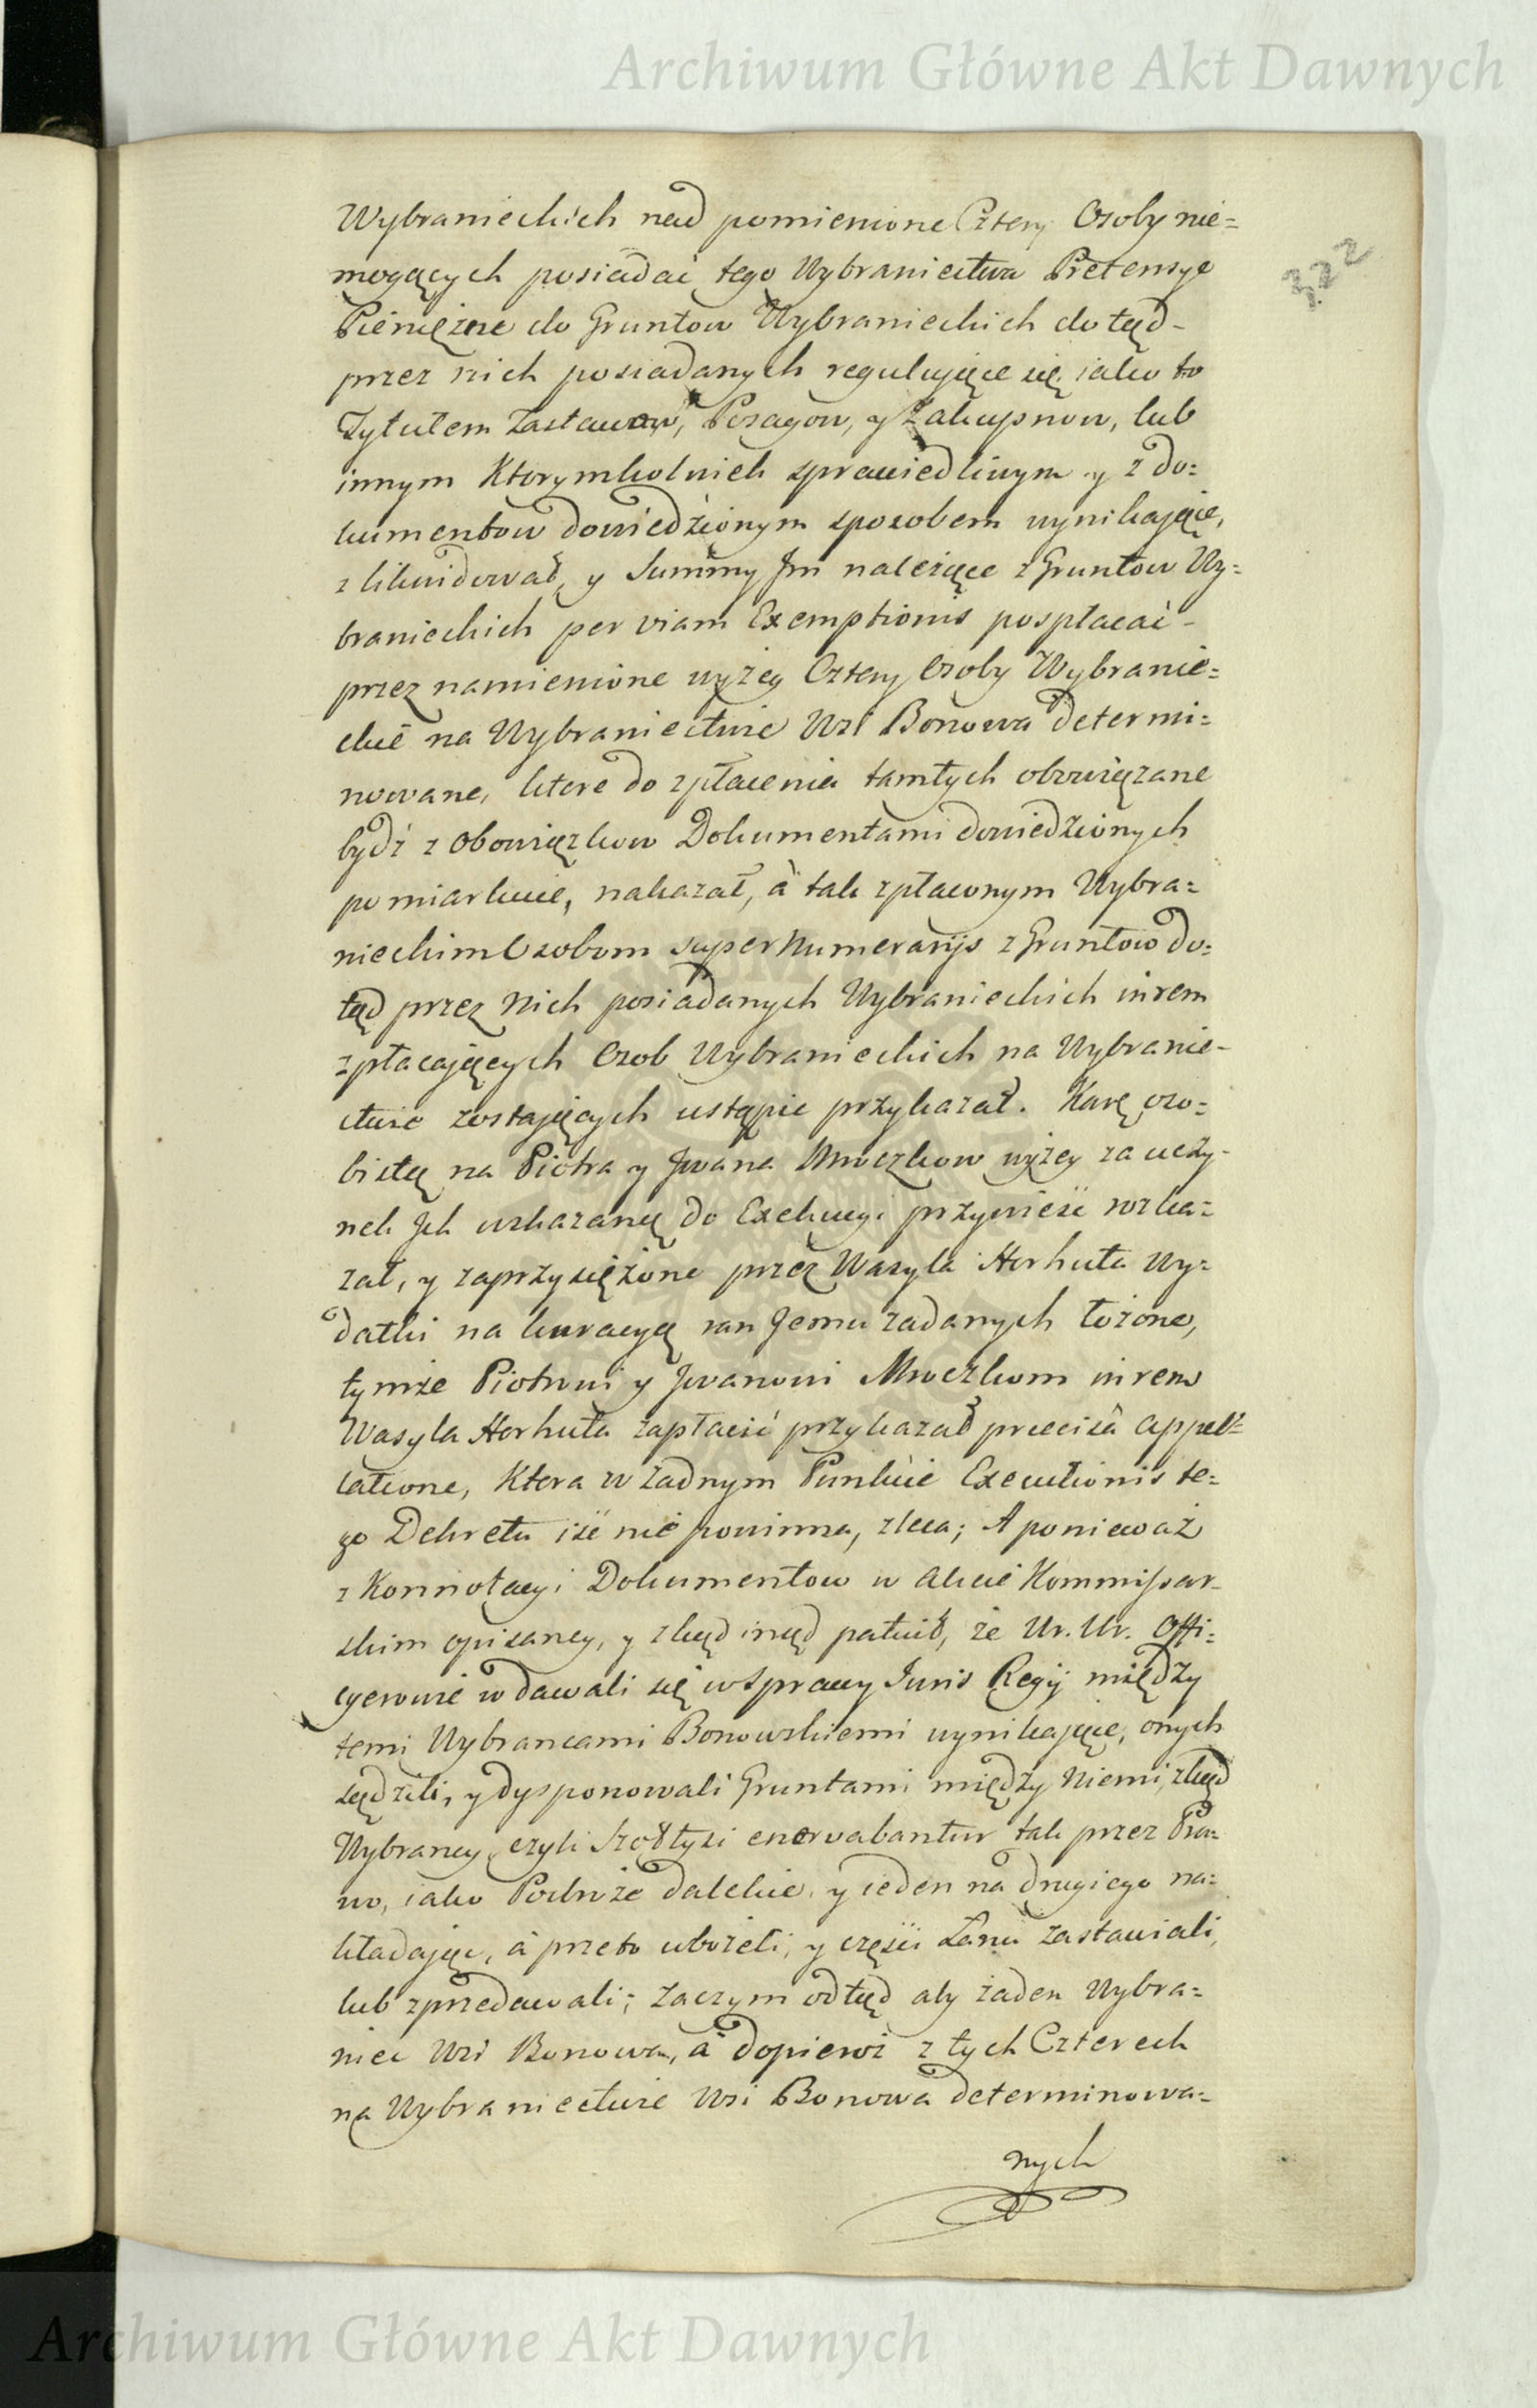 Archiwum Główne Akt Dawnych
322
Wybranieckich nad pomienione Cztery Osoby nie=
mogących posiadać tego Wybraniectwa Pretensye
Pieniężne do Gruntow Wybranieckich do tąd-
przez nich posiadanych regulujące się, iako to
Tytułem Zastawow, Posagow, y Zakupnow, lub
innym Ktorymkolwiek sprawiedliwym y z do=
kumentow dowiedzionym sposobem wynikające,
zlikwidował, y Summy Im należące z Gruntow Wy=
branieckich per viam Exemptionis pospłacać-
przez namienione wyżey Cztery Osoby Wybranie=
ckie na Wybraniectwie Wsi Bonowa determi=
nowane, ktore do zpłacenia tamtych obowiązane
bydź z Obowiązkow Dokumentami dowiedzionych
pomiarkuie, nakazał, à tak zpłaconym Wybra=
nieckim Osobom supernumerarijs z Gruntow do=
tąd przez Nich posiadanych Wybranieckich in rem
zpłacających Osob Wybranieckich na Wybranie-
ctwie zostających ustąpić przykazał. Karę oso=
bistą na Piotra y Jwana Mroczkow wyżey za uczy-
nek Jch wskazaną do Exekucyi przywieść rozka=
zał, y zaprzysiężone przez Wasyla Horhuta Wy=
datki na kuracyą ran Jemu zadanych łożone,
tymże Piotrowi y Jwanowi Mroczkom in rem
Wasyla Horhuta zapłacić przykazał precisâ appel=
latione, Ktora w żadnym Punkcie Executionis te=
go Dekretu iść nie powinna, zleca; A ponieważ
z Konnotacyi Dokumentow w Akcie Kommissar-
skim opisaney, y zkąd inąd patuit, że Ur. Ur. Offi=
cyerowie wdawali się w Sprawy Juris Regij między
temi Wybrancami Bonowskiemi wynikające, onych
sądzili, y dysponowali Gruntami między Niemi, zkąd
Wybrancy, czyli Szołtysi enervabantur tak przez Pra=
wo, iako Podroże dalekie, y ieden na drugiego na=
kładaiąc, à przeto ubożeli, y części Łanu zastawiali,
lub zprzedawali; Zaczym odtąd aby żaden Wybra=
niec Wsi Bonowa, à dopieroż z tych Czterech
na Wybraniectwie Wsi Bonowa determinowa=
nych
Archiwum Główne Akt Dawnych